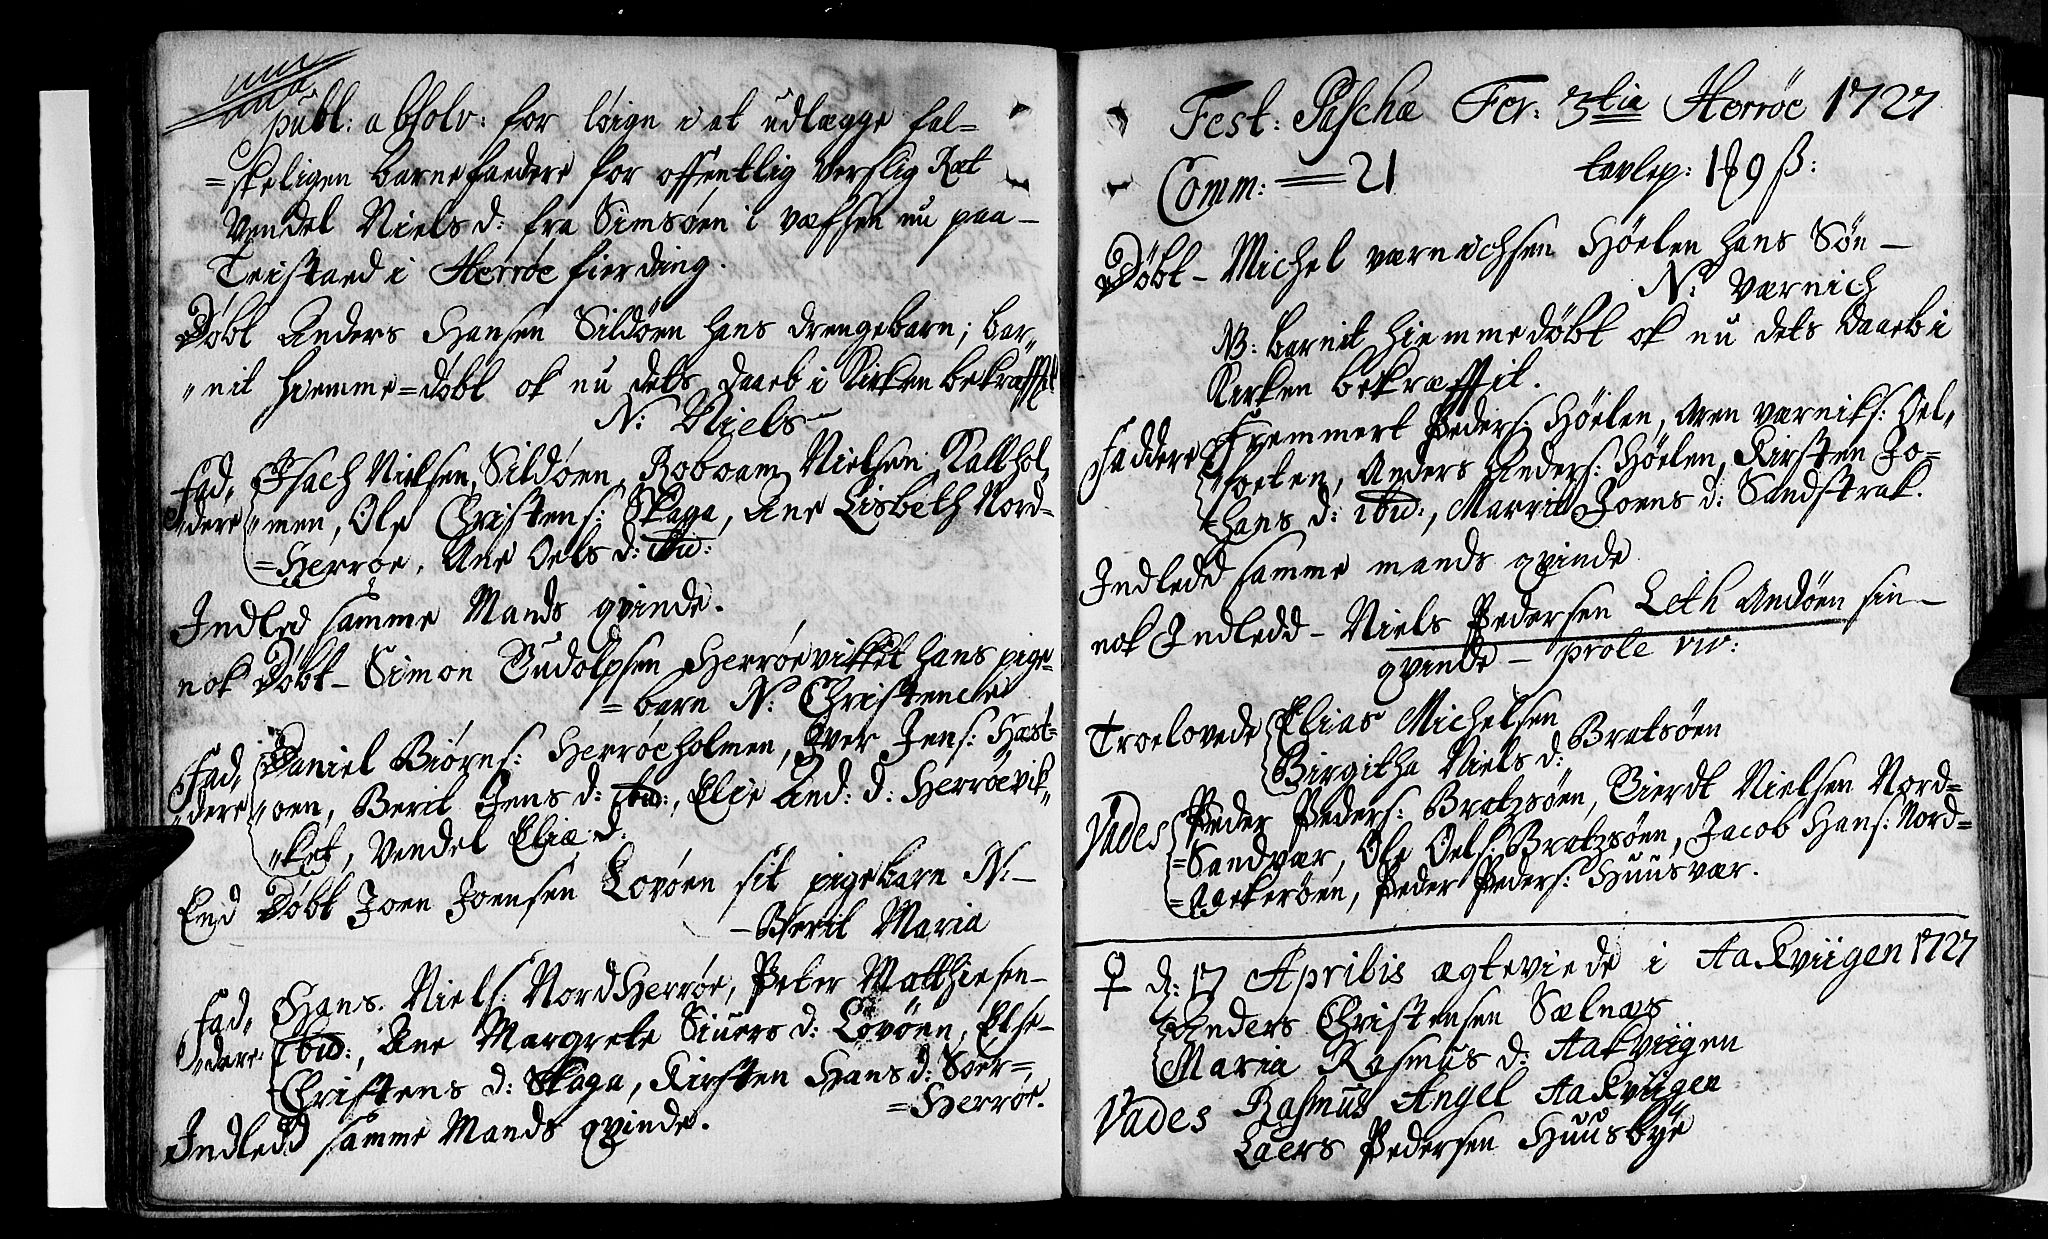 publ: absolv: for løign i at udlægge fal=
=skeligen barnefaedere for offentlig Verslig Ræt
Vendel Niels d: fra Simsøen i væfsen nu paa-
Tristaed i Herrøe fierding.
Døbt Anders Hansen Sildøen hans drengebarn; bar„
„nit hiemme=døbt ok nu dets daaeb i Kirken bekræfftit
N: Niels
Fad„ Isach Nielsen, Sildøen, Roboam Nielsen Kalfhol„
„dere „men, Ole Christens: Skaga, Ane Lisbeth Nord-
=Herrøe, Ane Oels d: ibid:
Indled samme Mands qvinde.
nok Døbt - Simon Rudolpsen Herrøevikket hans pige-
=barn N: Christence
Fad„ Daniel Biørns: Herrøeholmen, Iver Jens: Hæst-
„dere „oen, Beril Jens d: ibid:, Elie And: d: Herrøevik„
„ket, Vendel Eliæ d:
End Døbt Joen Joensen Lovøen sit pigebarn N: -
- Beril Maria
Fad„ Hans Niels: NordHerrøe, Peter Matthiesen-
„dere: ibid:, Ane Margrete Siuers d: Lovøen, Else-
Christens d: Skaga, Kirsten Hans d: Soer=
=Herrøe.
Indledd samme Mands qvinde.
Fest: Paschæ Fer: 3tia Herrøe 1727
Comm: = 21 tavlep: 9 ß:
Døbt - Michel værnichsen Høelen hans Søn -
N: Værnich
NB: barnit hiemmedøbt ok nu dets daaeb i
Kirken bekræfftit.
Faddere Fremmert Peders: Høelen, Aren værniks: Oel„
„hoelen, Anders Anders: Høelen, Kirsten Jo=
=hans d: ibid:, Marrit Joens d: Sandstrak.
Indledd samme mands qvinde
nok Indledd - Niels Pedersen Leth Andøen sin -
qvinde - prole viv:
Troelovede Elias Michelsen
Birgitha Niels d: Bratsøen
Vades Peder Peders: Bratzsøen, Sierdt Nielsen Nord=
=Sandvær, Ole Oels: Bratzsøen, Jacob Hans: Nord=
=Aakerøen, Peder Peders: Huusvær.
♀ d: 17 Aprilis ægteviede i Aakviigen 1727
Anders Christensen Sælnæs
Maria Rasmus d: Aakviigen
Vades Rasmus Angel Aakviigen
Laers Pedersen Huusbye